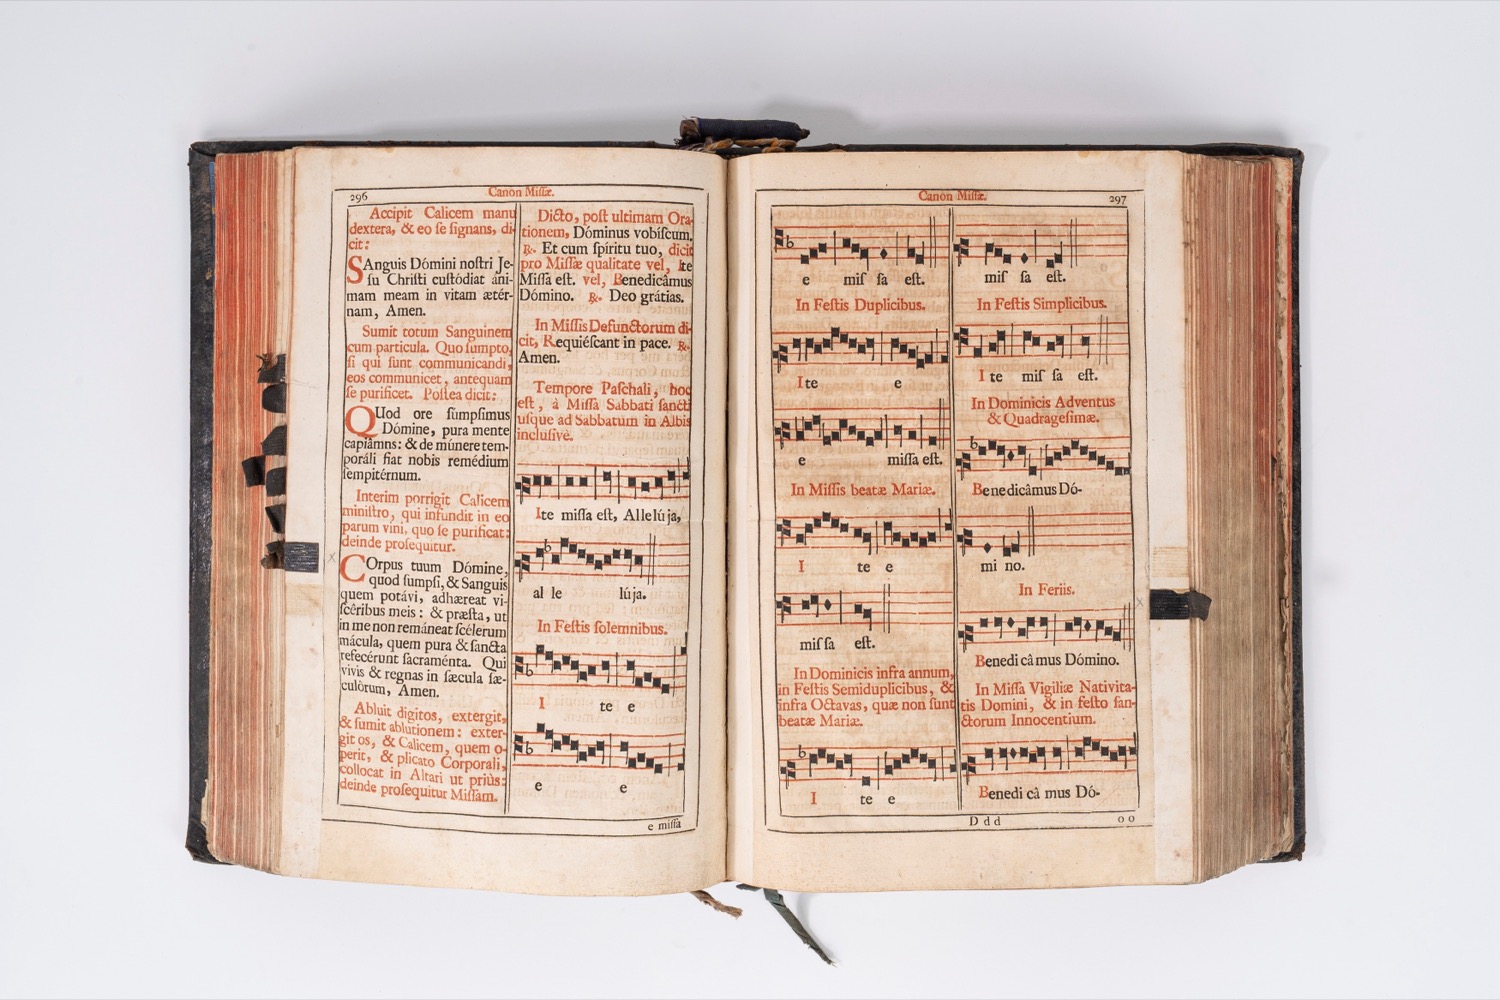 296
Canon Missæ.
Accipit Calicem manu
dextera, & eo se signans, di-
cit:
SAnguis Dómini nostri Je-
su Christi custódiat áni-
mam meam in vitam ætér-
nam, Amen.
Sumit totum Sanguinem
cum particula. Quo sumpto,
si qui sunt communicandi,
eos communicet, antequam
se purificet. Postea dicit:
QUod ore sumpsimus
Dómine, pura mente
capiâmns: & de múnere tem-
poráli fiat nobis remédium
sempitérnum.
Interim porrigit Calicem
ministro, qui infundit in eo
parum vini, quo se purificat:
deinde prosequitur.
COrpus tuum Dómine,
quod sumpsi, & Sanguis
quem potávi, adhæreat vi-
scéribus meis: & præsta, ut
in me non remáneat scélerum
mácula, quem pura & sancta
refecérunt sacraménta. Qui
vivis & regnas in sæcula sæ-
culòrum, Amen.
Abluit digitos, extergit,
& sumit ablutionem: exter-
git os, & Calicem, quem o-
perit, & plicato Corporali,
collocat in Altari ut priùs:
deinde prosequitur Missam.
Dicto, post ultimam Ora-
tionem, Dóminus vobíscum.
℟. Et cum spíritu tuo, dicit
pro Missæ qualitate vel, Ite
Missa est. vel, Benedicâmus
Dómino. ℟. Deo grátias.
In Missis Defunctorum di-
cit, Requiéscant in pace. ℟.
Amen.
Tempore Paschali, hoc
est, à Missa Sabbati sancti
usque ad Sabbatum in Albis
inclusivè.
Ite missa est, Allelú ja,
al le lúja.
In Festis solemnibus.
I te e
e e
e missa
Canon Missæ.
297
e mis sa est.
In Festis Duplicibus.
Ite e
e missa est.
In Missis beatæ Mariæ.
I te e
mis sa est.
In Dominicis infra annum,
in Festis Semiduplicibus, &
infra Octavas, quæ non sunt
beatæ Mariæ.
I te e
mis sa est.
In Festis Simplicibus.
I te mis sa est.
In Dominicis Adventus
& Quadragesimæ.
Benedicâmus Dó-
mi no.
In Feriis.
Benedi câ mus Dómino.
In Missa Vigiliæ Nativita-
tis Domini, & in festo san-
ctorum Innocentium.
Benedi câ mus Dó-
D d d
o o